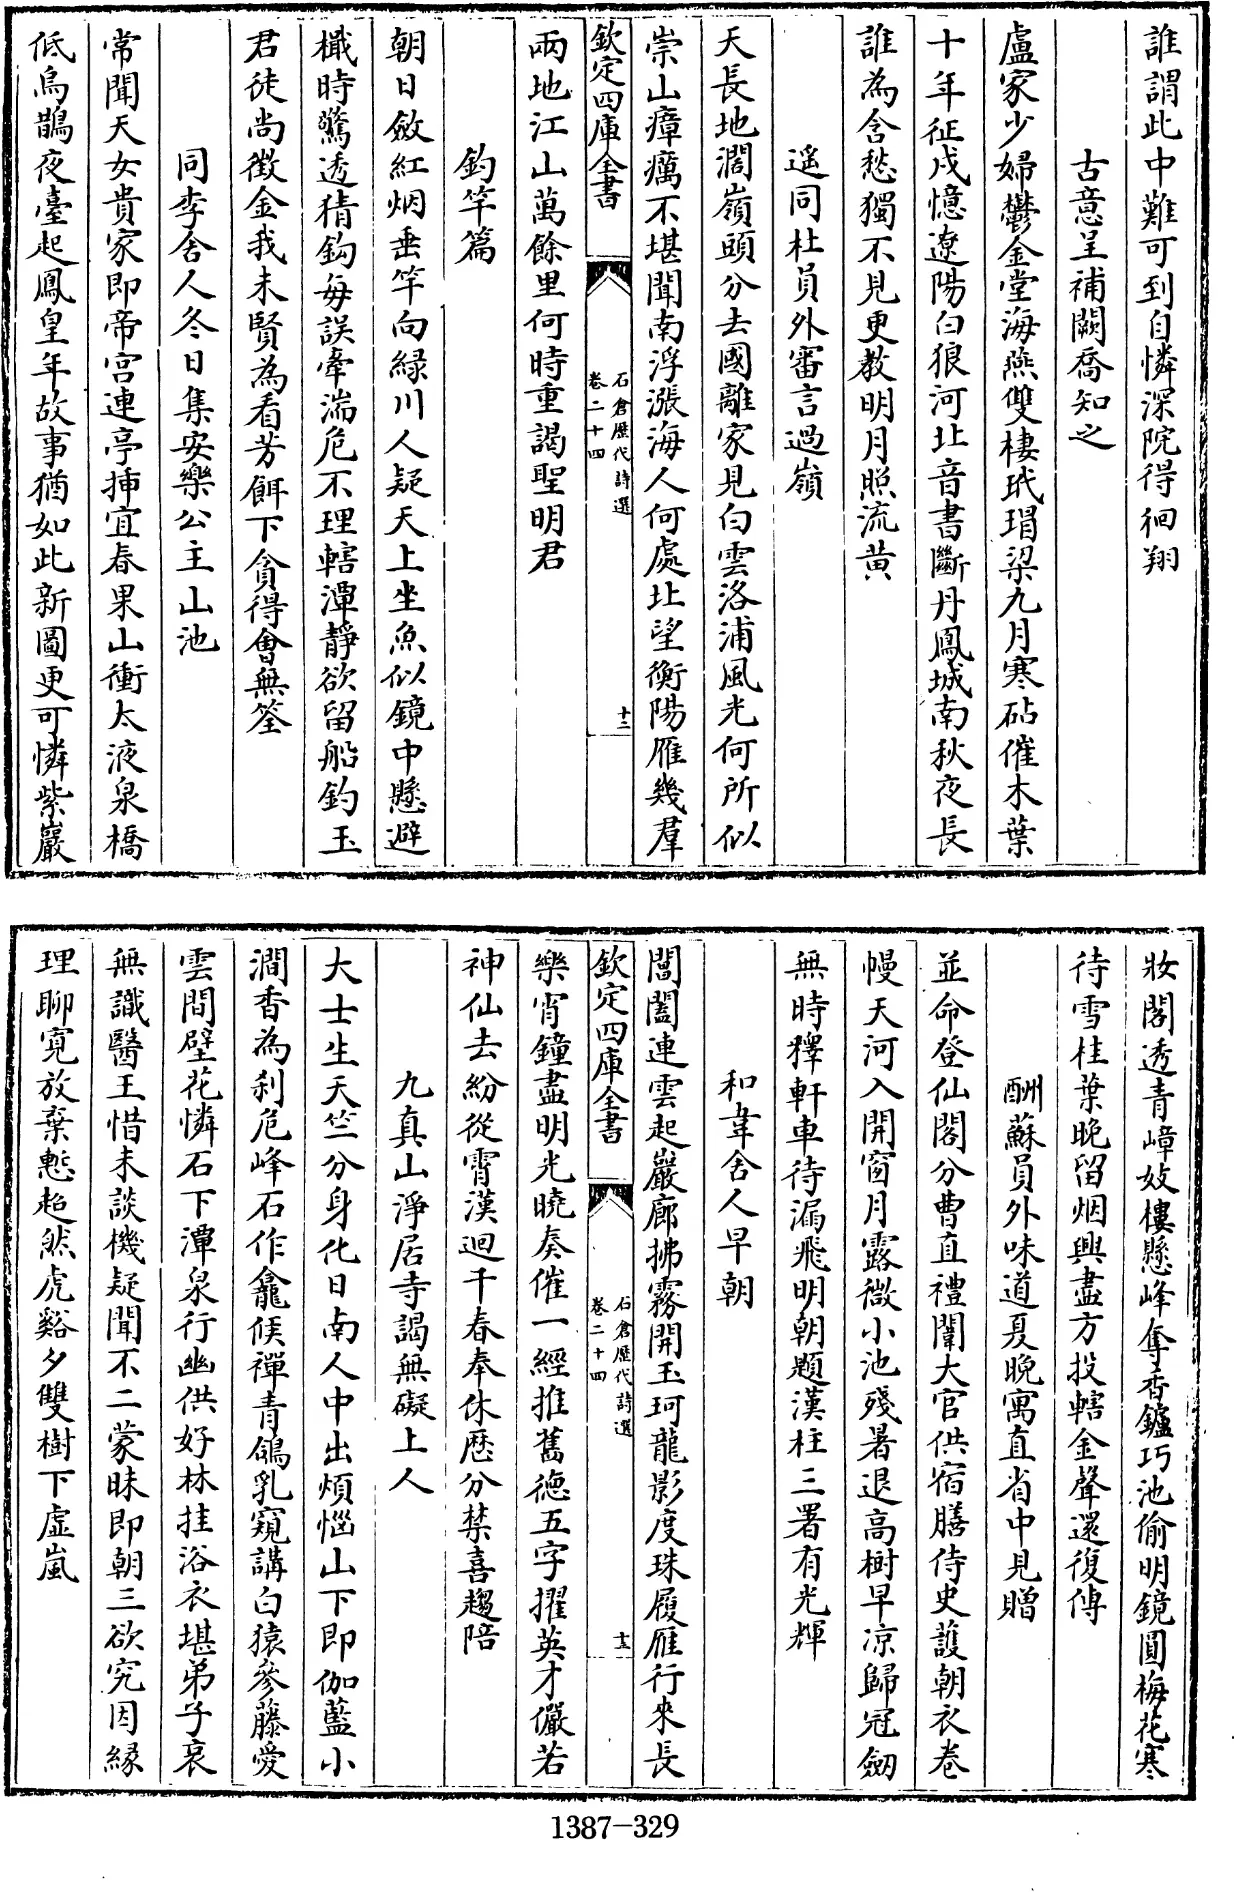 誰謂此中難可到自憐深院得徊翔
古意呈補闕喬知之
盧家少婦鬱金堂海燕雙棲玳瑁梁九月寒砧催木葉
十年征戍憶遼陽白狼河北音書斷丹鳳城南秋夜長
誰為含愁獨不見更教明月照流黄
遥同杜員外審言過嶺
天長地濶嶺頭分去國離家見白雲洛浦風光何所似
崇山瘴癘不堪聞南浮漲海人何處北望衡陽雁幾羣
欽定四庫全書
石倉歷代詩選
卷二十四
十二
兩地江山萬餘里何時重謁聖明君
釣竿篇
朝日斂紅烟垂竿向緑川人疑天上坐魚似鏡中懸避
檝時驚透猜鈎每誤牽湍危不理轄潭靜欲留船釣玉
君徒尚徵金我未賢為看芳餌下貪得會無筌
同李舍人冬日集安樂公主山池
常聞天女貴家即帝宫連亭揷宜春果山衝太液泉橋
低烏鵲夜臺起鳳皇年故事猶如此新圖更可憐紫巖
妝閣透青嶂妓樓懸峰奪香鑪巧池偷明鏡圓梅花寒
待雪桂葉晚留烟興盡方投轄金聲還復傳
酬蘇員外味道夏晚寓直省中見贈
並命登仙閣分曹直禮闈大官供宿膳侍史護朝衣卷
幔天河入開窗月露微小池殘暑退高樹早凉歸冠劒
無時釋軒車待漏飛明朝題漢柱三署有光輝
和韋舍人早朝
閶闔連雲起巖廊拂霧開玉珂龍影度珠履雁行來長
欽定四庫全書
石倉歷代詩選
卷二十四
十三
樂宵鐘盡明光曉奏催一經推舊德五字擢英才儼若
神仙去紛從霄漢迴千春奉休歴分禁喜趨陪
九真山淨居寺謁無礙上人
大士生天竺分身化日南人中出煩惱山下即伽藍小
澗香為刹危峰石作龕候禪青鴿乳窺講白猿參藤愛
雲間壁花憐石下潭泉行幽供好林挂浴衣堪弟子哀
無識醫王惜未談機疑聞不二蒙昧即朝三欲究因緣
理聊寛放棄慙超然虎谿夕雙樹下虚嵐
1387-329